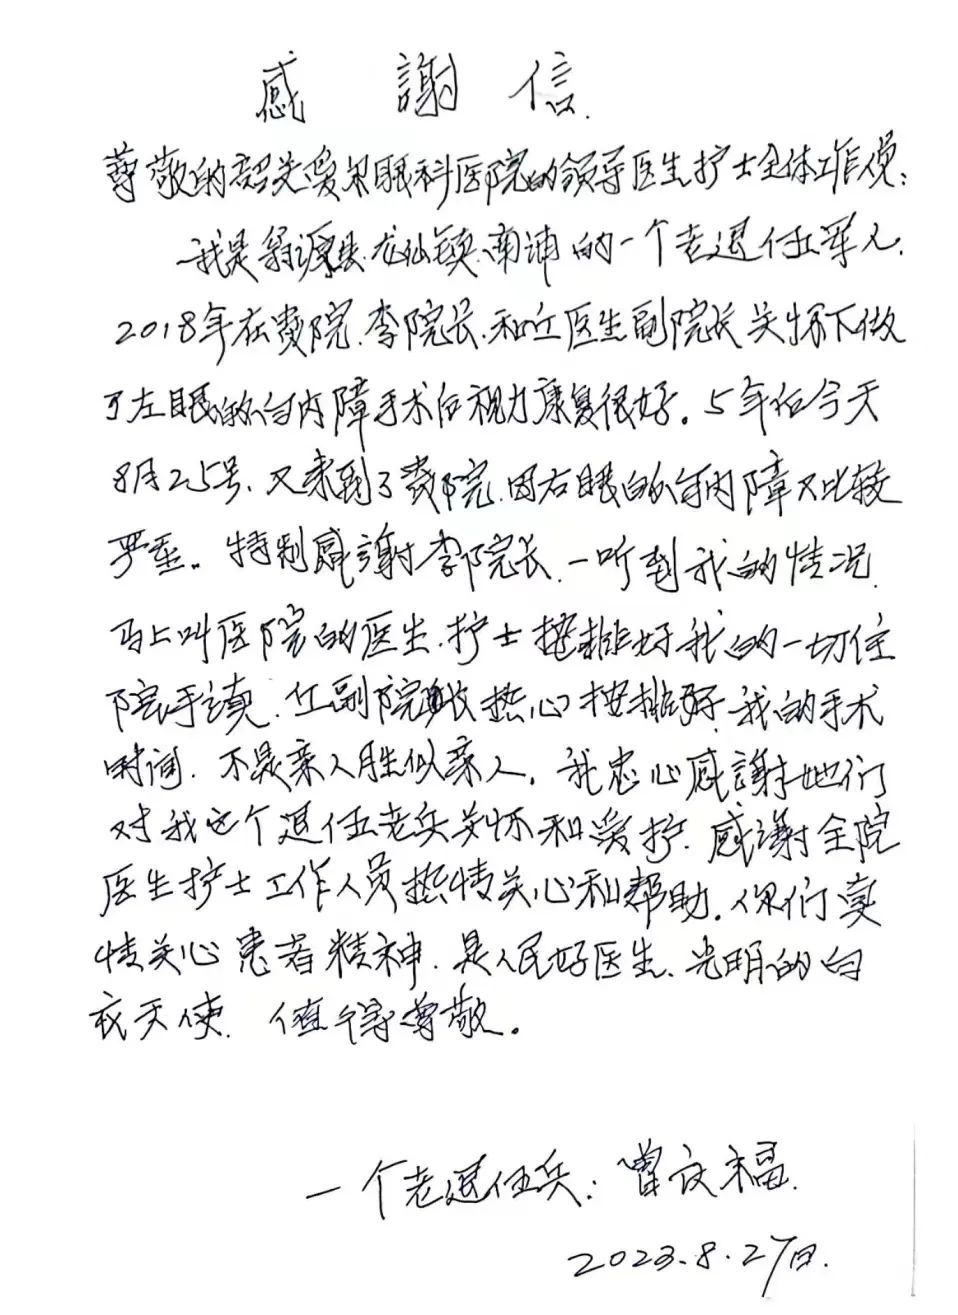 感 謝 信
尊敬的韶关爱尔眼科医院的领导医生护士全体工作员：
我是翁源县.龙仙镇.南浦的一个老退伍军人.
2018年在贵院.李院长.和丘医生副院长关怀下做
了左眼的白内障手术后视力康复很好。5年后今天
8月25号、又来到了贵院.因右眼的白内障又比较
严重。特别感謝李院长.一听到我的情况.
马上叫医院的医生.护士按排好我的一切住
院手续.丘副院长热心按排好我的手术
时间.不是亲人胜似亲人.我忠心感謝他们
对我这个退伍老兵关怀和爱护.感謝全院
医生护士工作人员热情关心和帮助.你们真
情关心患者精神.是人民好医生.光明的白
衣天使.值得尊敬。
一个老退伍兵：曾文福.
2023.8.27日.